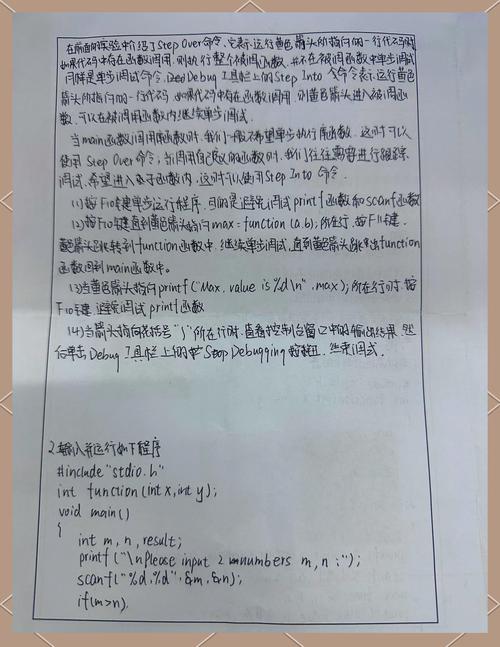 在前面的实验中介绍了Step Over命令,它表示运行黄色箭头所指向的一行代码时
如果代码中有函数调用,则执行整个被调函数,并不在被调函数中单步调试
同样是单步调试命令,Debug工具栏上的Step Into命令表示运行黄色
箭头所指向的一行代码,如果代码中有函数调用,则黄色箭头进入被调函
数,可以在被调用函数内继续单步调试.
当main函数调用库函数时,我们一般不希望单步执行库函数,这时可以
使用Step Over命令,而调用自己定义的函数时,我们往往需要进行跟踪
调试,希望进入子函数内,这时可以使用Step Into命令.
(1)按F10键单步运行程序,目的是避免调试printf函数和scanf函数
(2)按F10键直到黄色箭头指向max=function(a,b);所在行,按F11键,
黄色箭头跳转到function函数中,继续单步调试,直到黄色箭头跳出function
函数回到main函数中。
(3)当黄色箭头指向printf("Max, value is %d\n",max);所在行时,按
F10键,避免调试printf函数
(4)当箭头指向花括号"}"所在行时,查看控制台窗口中的输出结果,然
后单击Debug工具栏上的Stop Debugging按钮,结束调式.
2.输入并运行如下程序
#include"stdio.h"
int function(int x,int y);
void main()
{
int m,n,result;
printf("\nPlease input 2 numbers m,n:");
scanf("%d,%d",&m,&n);
if(m>n),